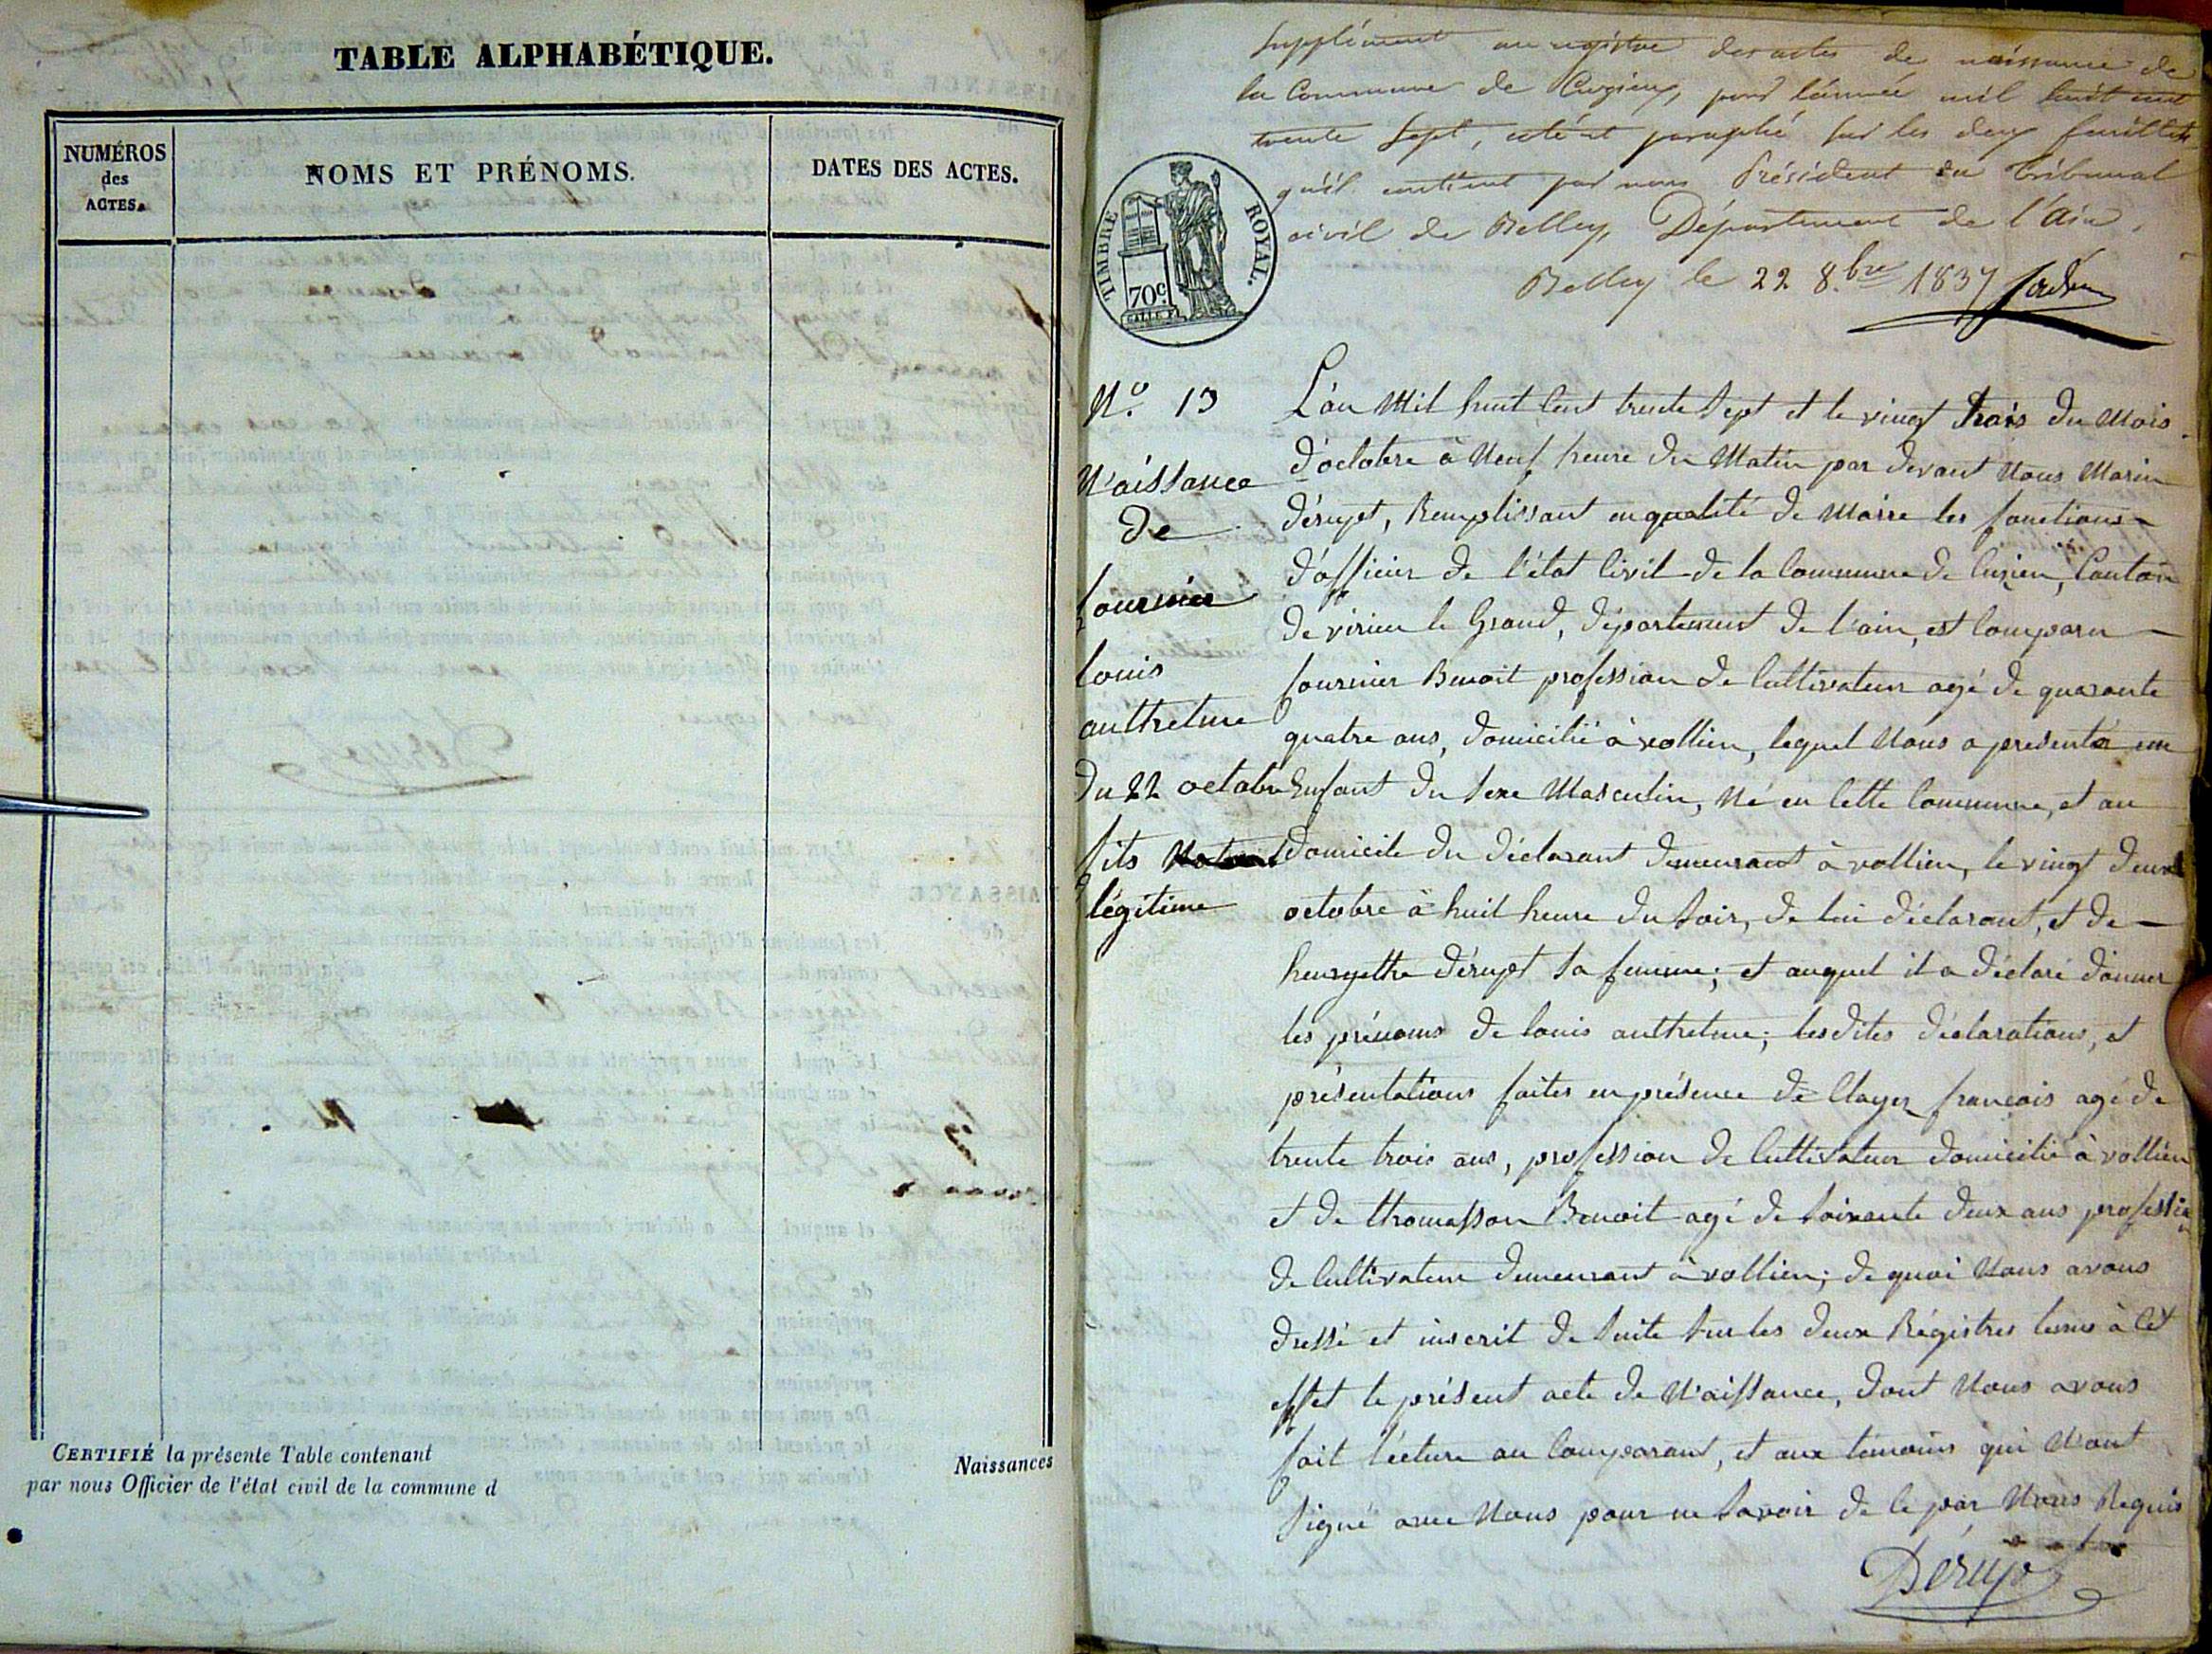 TABLE ALPHABÉTIQUE.
NUMÉROS
des
ACTES.
NOMS ET PRÉNOMS.
DATES DES ACTES.
CERTIFIÉ la présente Table contenant
Naissances
par nous Officier de l'état civil de la commune d
Supplément au registre des actes de naissance de
la Commune de Cuzieu, pour l'année mil huit cent
trente Sept, coté et paraphé sur les deux feuillets
qu'il contient par nous Président du Tribunal
civil de Belley, Département de l'Ain.
Belley le 22 8.bre 1837
TIMBRE ROYAL.
70c.
N.o 13
Naissance
De
fournier
louis
anthelme
Du 22 octobre
fils
légitime
L'an Mil huit Cent trente Sept et le vingt trois Du Mois
D'octobre à Neuf heure Du Matin par Devant Nous Marin
Dérupt, Remplissant en qualité De Maire les fonctions
D'officier De l'état Civil De la Commune De Cuzieu, Canton
De virieu le Grand, Département De l'ain, est Comparu
fournier Benoit profession De Cultivateur agé De quarante
quatre ans, Domicilié à vollien, lequel Nous a présenté un
Enfant Du Sexe Masculin, Né en Cette Commune, et au
Domicile Du Déclarant Demeurant à vollien, le vingt Deux
octobre à huit heure Du Soir, De lui Déclarant, et De
henryette Dérupt Sa femme; et auquel il a Déclaré Donner
les prénoms De louis anthelme; lesDites Déclarations, et
présentations faites en présence De Clayer francois agé De
trente trois ans, profession De Cultivateur Domicilié à vollien
et De thomasson Benoit agé De Soixante Deux ans profession
De Cultivateur Demeurant à vollien; De quoi Nous avons
Dressé et inscrit De Suite Sur les Deux Régistres tenus à Cet
effet le présent acte De Naissance, Dont Nous avons
fait lécture au Comparant, et aux témoins qui N'ont
Signé avec Nous pour ne Savoir De Ce par Nous Requis
Dérupt